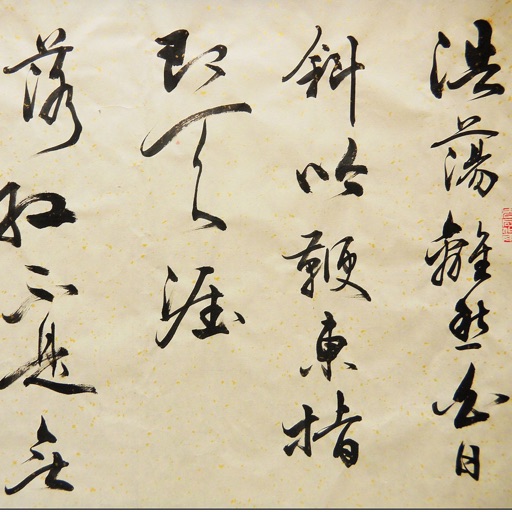 浩蕩離愁白日
斜吟鞭東指
即天涯
落紅不是無